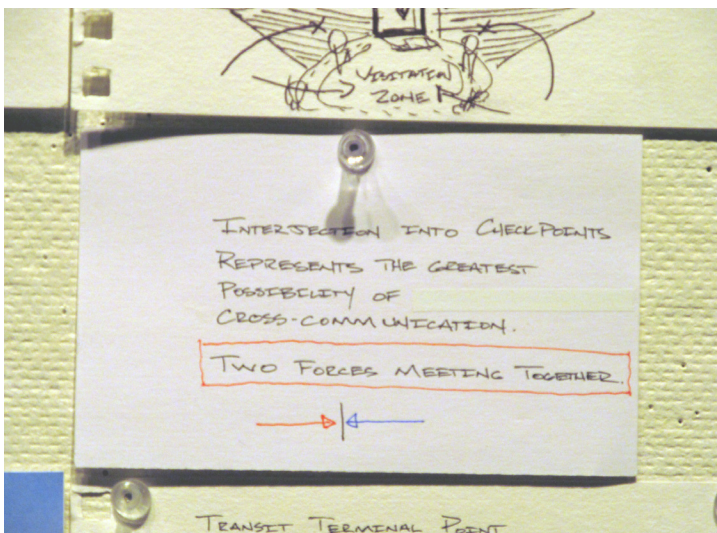 VISITATION
ZONE
INTERJECTION INTO CHECKPOINTS
REPRESENTS THE GREATEST
POSSIBILITY OF
CROSS-COMMUNICATION.
TWO FORCES MEETING TOGETHER.
TRANSIT TERMINAL POINT